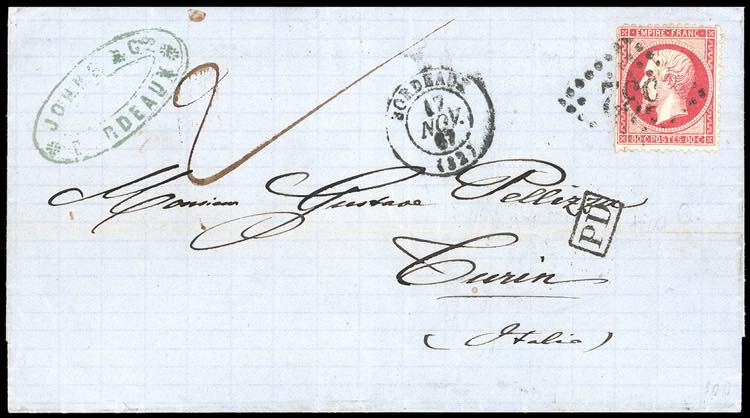 JOHNS * Cº
* BORDEAUX *
2
BORDEAUX
17
NOV.
67
(32)
EMPIRE FRANC
80·C POSTES 80·C
Monsieur Gustave Pellizza
PD
Turin
(Italie)
100